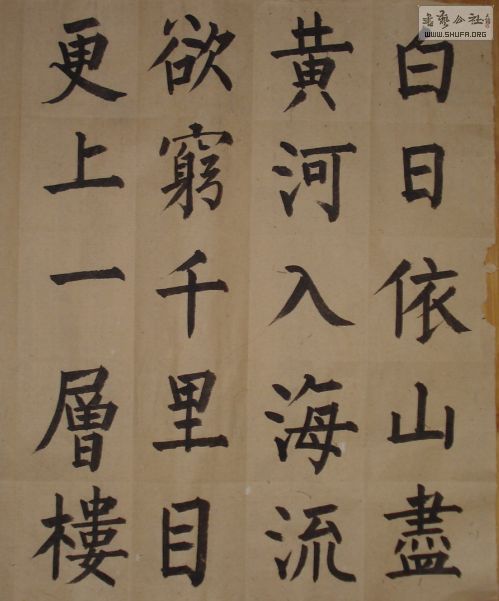 白日依山盡
黃河入海流
欲窮千里目
更上一層樓
書藝公社
WWW.SHUFA.ORG